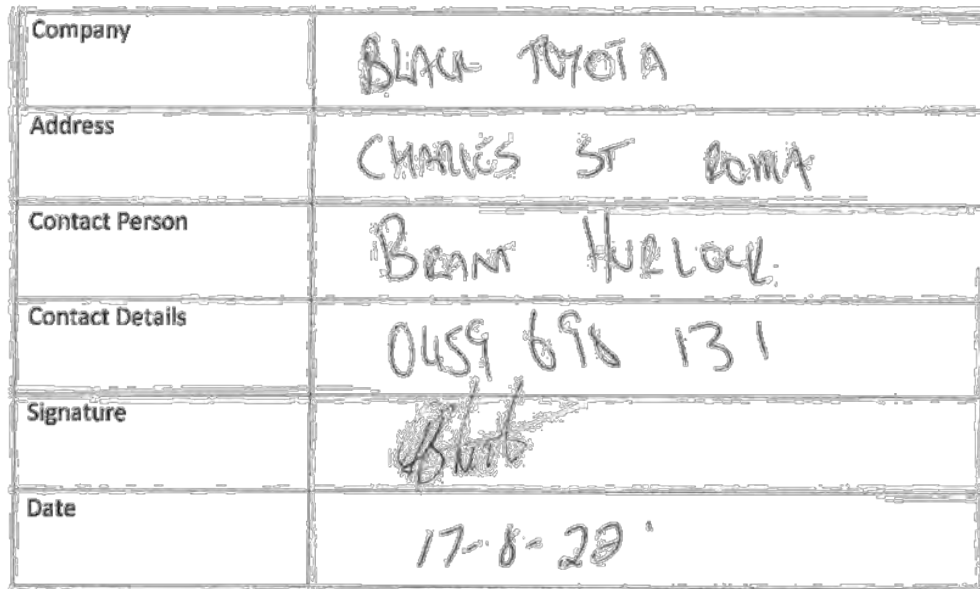 Company BLACK TOYOTA
Address CHARLES ST ROMA
Contact Person BRANT HURLOCK
Contact Details 0459 698 131
Signature
Date 17-8-22